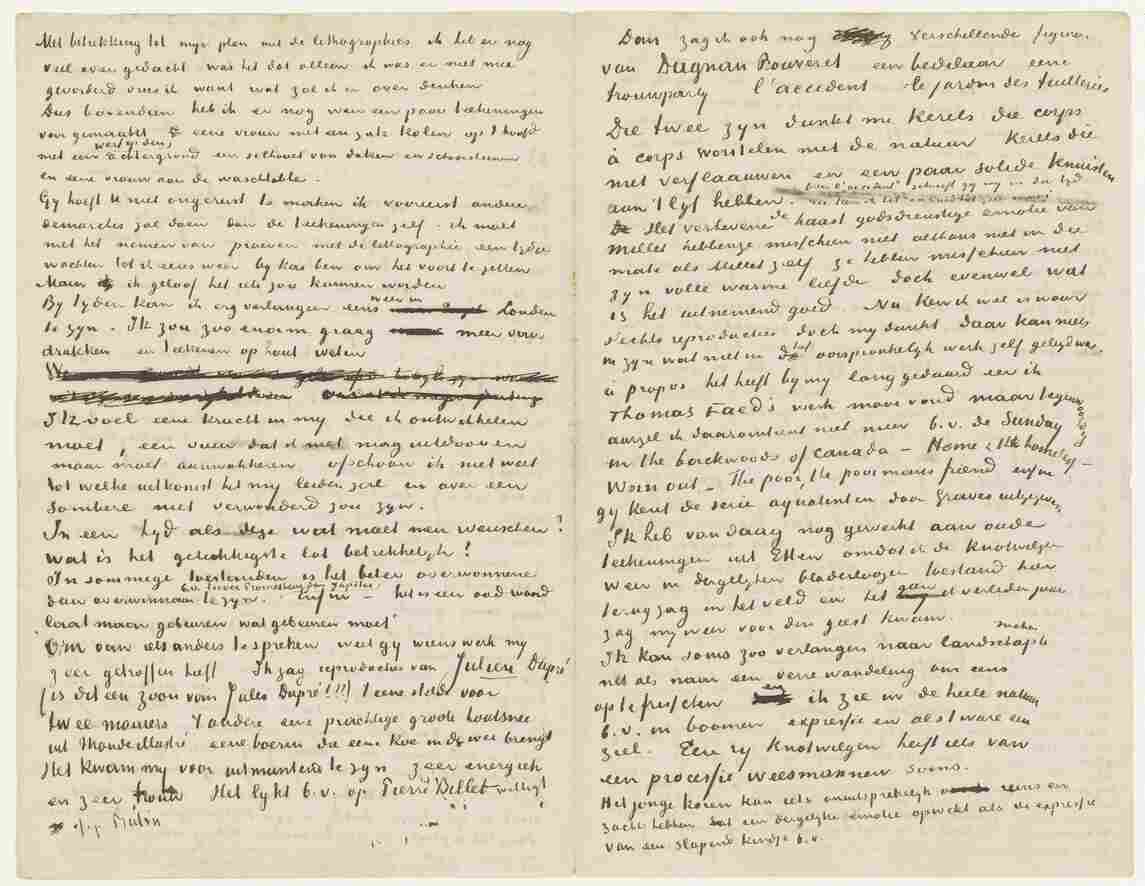 Met betrekking tot mijn plan met de lithographies ik heb er nog
veel over gedacht was het dat alleen ik was er niet mee
gevorderd vrees ik want wat zal ik er over denken
Dus bovendien heb ik er nog weer een paar teekeningen
voor gemaakt eene vrouw met een zak kolen op 't hoofd
wei(geiden)
met een achtergrond een silhouet van daken en schoorsteenen
en eene vrouw aan de waschtobbe.
Gy hoeft U niet ongerust te maken ik vooreerst andere
demarches zal doen dan de teekeningen zelf. ik moet
met het nemen van proeven met de lithographie een tydje
wachten tot ik eens weer by kas ben om het voort te zetten
Maar ik geloof het iets zou kunnen worden
By tyden kan ik erg verlangen eens weer in Londen
te zyn. Ik zou zoo enorm graag meer over
drukken en teekenen op hout weten
Ik voel eene kracht in my die ik ontwikkelen
moet, een vuur dat ik niet mag uitdooven
maar moet aanwakkeren ofschoon ik niet weet
tot welke uitkomst het my leiden zal en over een
sombere niet verwonderd zou zyn.
In een tyd als deze wat moet men wenschen?
Wat is het gelukkigste lot betrekkelyk?
In sommige toestanden is het beter overwonnene
dan overwinnaar te zyn. b.v. liever Prometheus dan Jupiter
enfin – het is een oud woord
'laat maar gebeuren wat gebeuren moet'
Om van iets anders te spreken weet gy wiens werk my
zeer getroffen heeft Ik zag reproducties van Julien Dupré
(is dit een zoon van Jules Dupré!!!) 't eene stelde voor
twee maaiers 't andere eene prachtige groote houtsnee
uit Monde Illustré eene boerin die eene koe in de wei brengt
Het kwam my voor uitmuntend te zyn zeer energiek
en zeer trouw Het lykt b.v. op Pierre Billet welligt
of op Butin
Dan zag ik ook nog verschillende figuren
van Dagnan Bouveret een bedelaar eene
trouwparty l'accident le jardin des tuilleries
Die twee zyn dunkt me kerels die corps
à corps worstelen met de natuur Kerels die
niet verflaauwen en een paar solide knuisten
aan 't lyf hebben. over l'accident schreeft gy my in der tyd
Het verhevene de haast godsdienstige emotie van
Millet hebben ze misschien niet althans niet in die
mate als Millet zelf ze hebben misschien niet
zyn volle warme liefde doch evenwel wat
is het uitnemend goed. Nu ken ik wel is waar
slechts reproducties doch my dunkt daar kan niets
in zyn wat niet in het oorspronkelyk werk zelf gelegd was.
à propos het heeft by my lang geduurd eer ik
Thomas Faed's werk mooi vond maar tegenwoordig
aarzel ik daaromtrent niet meer b.v. de Sunday
in the backwoods of Canada – Home & the homeless –
Worn out – The poor, the poor mans friend enfin
gy kent de serie aquatinten door Graves uitgegeven
Ik heb vandaag nog gewerkt aan oude
teekeningen uit Etten omdat ik de Knotwilgen
weer in dergelyken bladerloozen toestand hier
terug zag in het veld en het geen ik verleden jaar
zag my weer voor den geest kwam.
Ik kan soms zoo verlangen naar landschap te maken
net als naar een verre wandeling om eens
op te frisschen en ik zie in de heele natuur
b.v. in boomen expressie en als 't ware een
ziel. Een ry Knotwilgen heeft iets van
een processie weesmannen soms.
Het jonge koren kan iets onuitsprekelyk reins en
zachts hebben dat een dergelyke emotie opwekt als de expressie
van een slapend kindje b.v.